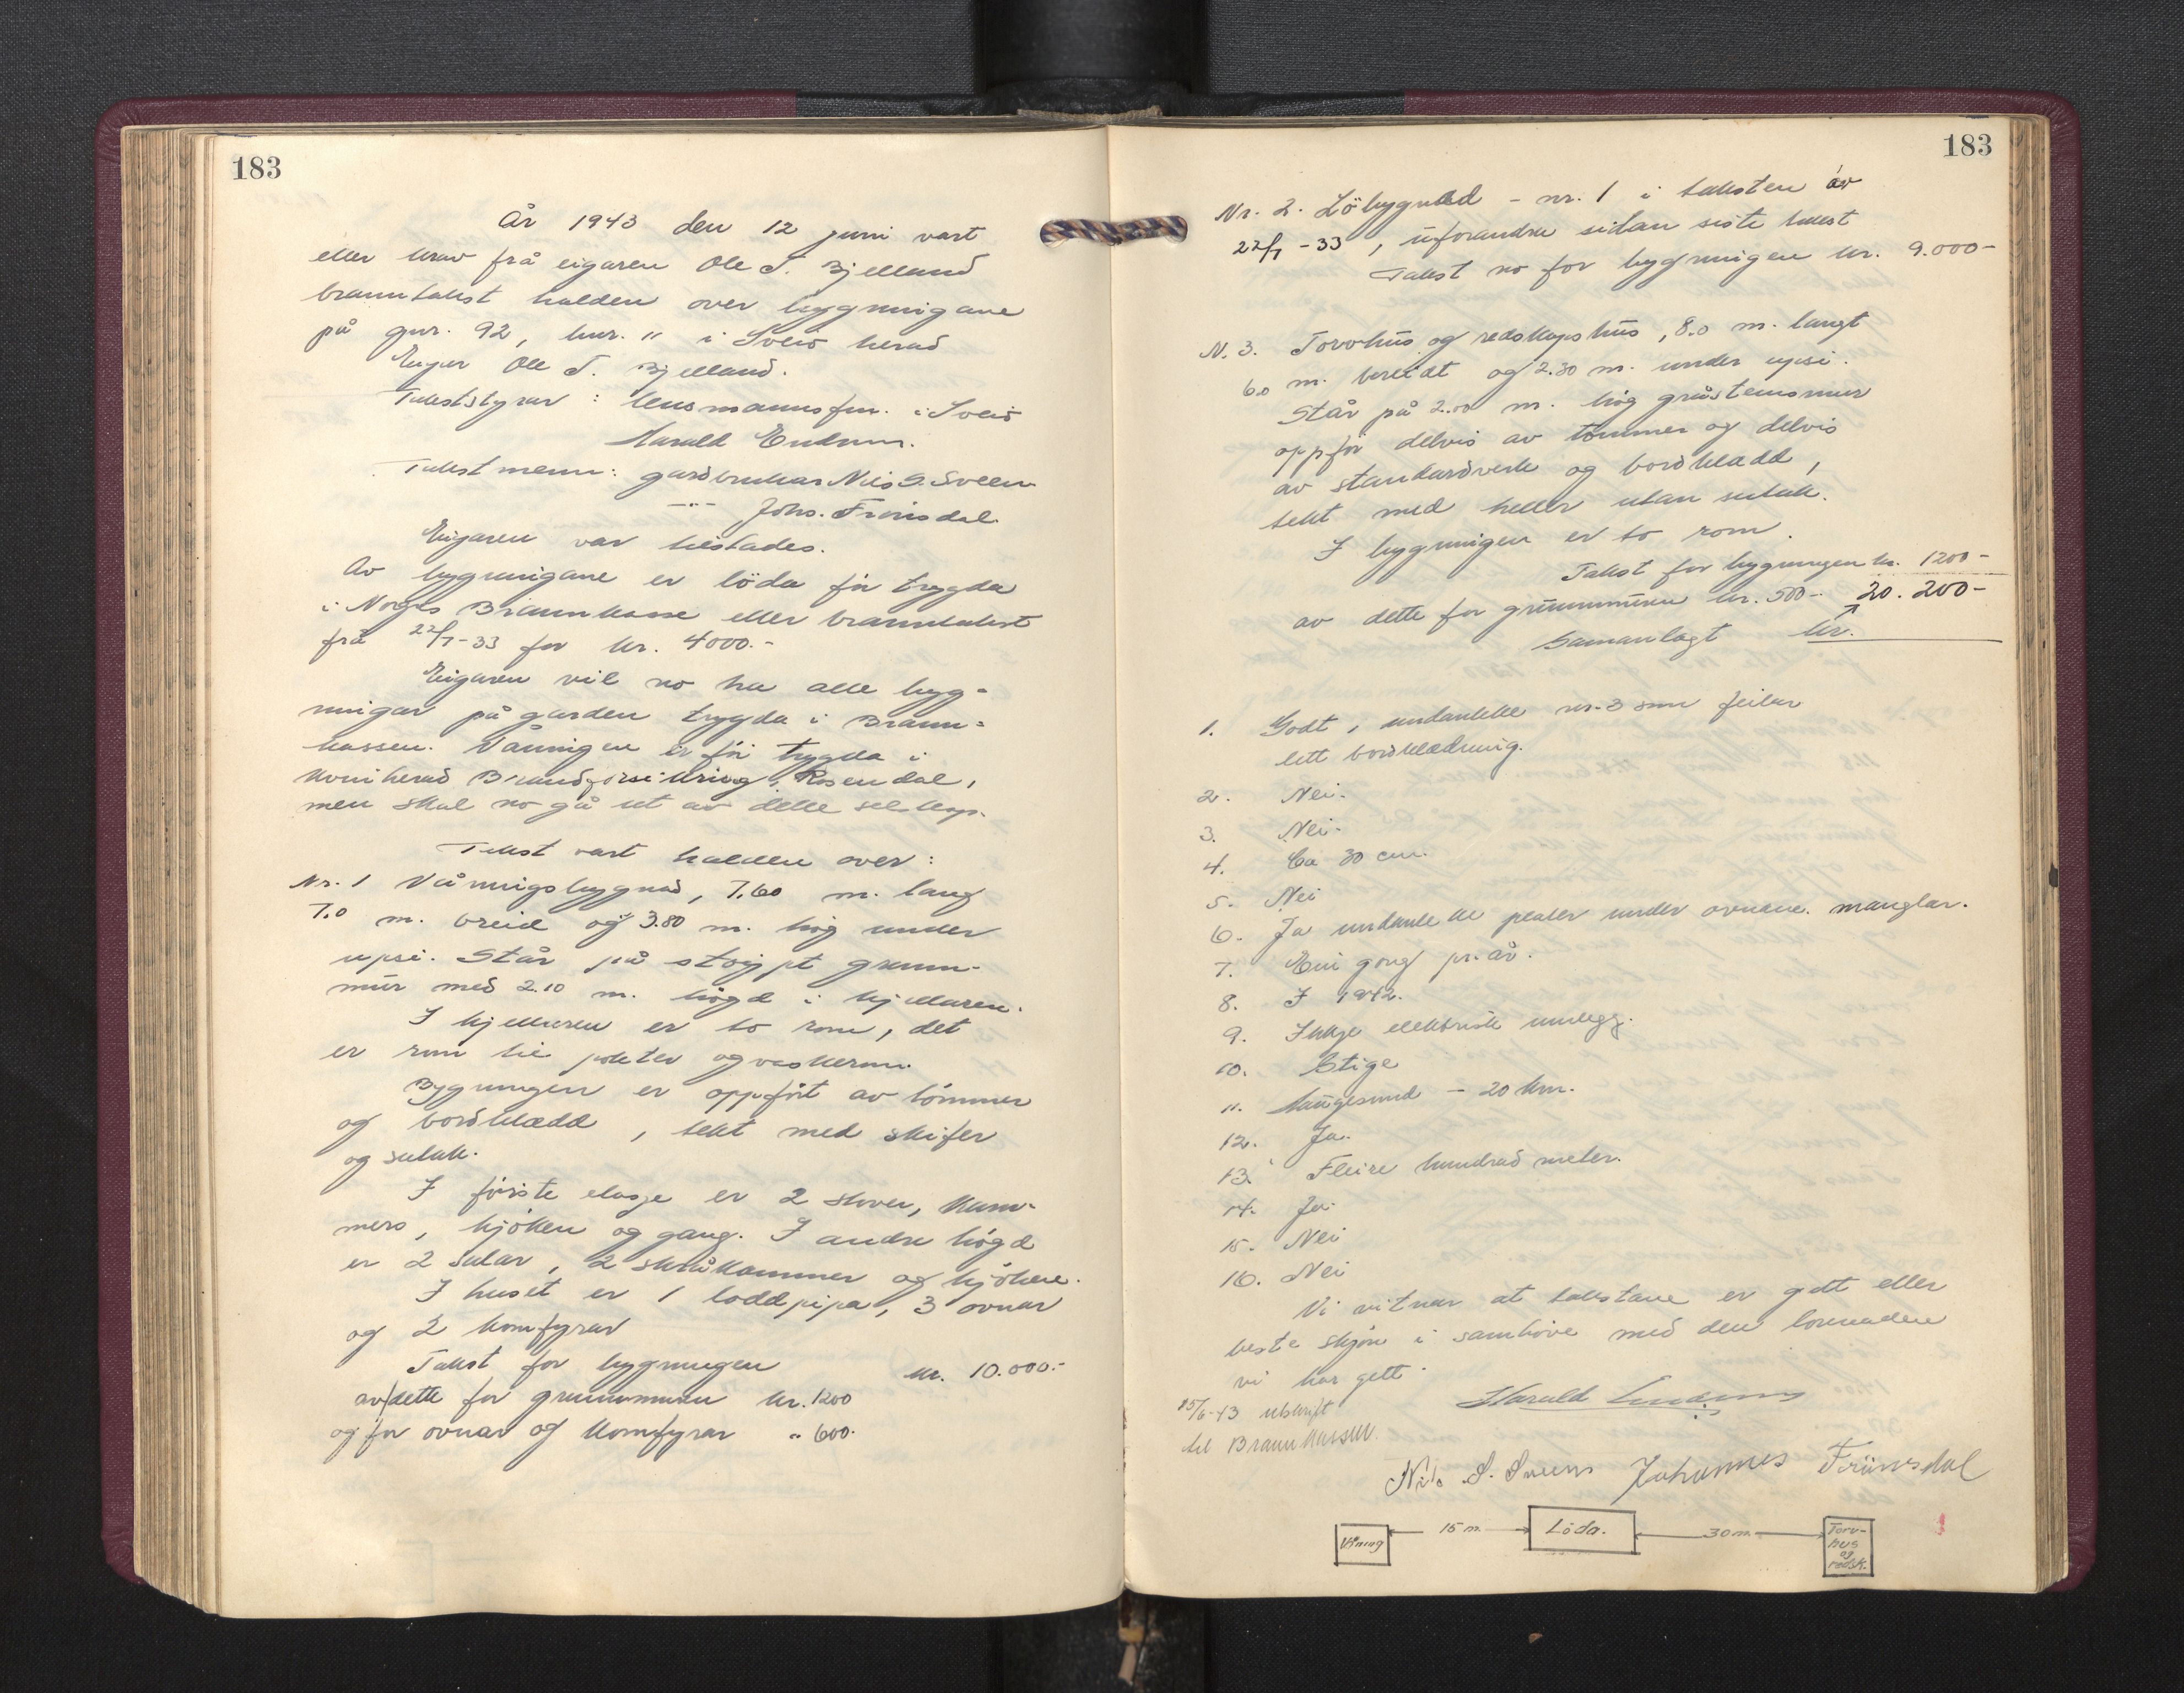 183
År 1943 den 12 juni vart
etter krav frå eigaren Ole T. Bjelland
branntakst halden over bygningane
på gnr. 92, bnr. " i Sveio herad
Eigar Ole T. Bjelland.
Takststyrar: lensmannsfm. i Sveio
Harald
Takstmenn: gardbrukar Nils S. Sveen
-"- Johs. Frønsdal
Eigaren var tilstades.
Av bygningane er löda för trygda
i Norges Brannkasse etter branntakst
frå 22/7-33 for kr. 4000.-
Eigaren vil no ha alle byg-
ningar på garden trygda i Brann-
kassen. Våningen er för trygda i
Kvinherad Brandforsikring, Rosendal,
men skal no gå ut av dette selskap.
Takst vart halden over:
Nr. 1 Våningsbygnad, 7.60 m. lang
7.0 m. breid og 3.80 m. høg under
upsi. Står på støypt grunn-
mur med 2.10 m. høgd i kjellaren.
I kjellaren er to rom, det
er rom til poteter og vaskerom.
Bygningen er oppført av tømmer
og bordklædd, tekt med skifer
og sutak.
I første etasje er 2 stover, kam-
mers, kjøken og gang. I andre høgd
er 2 salar, 2 skråkammer og kjøken.
I huset er 1 loddpipa, 3 ovnar
og 2 komfyrar
Takst for bygningen kr. 10.000.-
av dette for grunnmuren kr. 1200
og for ovnar og komfyrar " 600.
183
Nr. 2. Löbygnad - nr. 1 i taksten av
22/7-33, uforandra sidan siste takst
Takst no for bygningen kr. 9.000-
N. 3. Torvhus og redskapshus, 8.0 m. langt
6.0 m. breidt og 2.30 m. under upsi.
Står på 2.00 m. høg gråsteinsmur
oppför delvis av tømmer og delvis
av standardverk og bordkladd,
tekt med heller utan sutak.
I bygningen er to rom.
Takst for bygningen kr. 1200-
av dette for grunnmuren kr. 500- 20.200-
Samanlagt kr.
1. Godt, undantekke nr. 3 som feilar
litt bordklædning.
2. Nei.
3. Nei.
4. Ca 30 cm.
5. Nei
6. Ja undantekke plater under ovnane manglar.
7. Ein gong pr. år.
8. I 1942.
9. Ikkje elektrisk innlegg.
10. Stige
11. Haugesund - 20 km.
12. Ja.
13. Fleire hundrad meter.
14. Ja.
15. Nei
16. Nei
Vi vitnar at takstane er gitt etter
beste skjøn i samhøve med den lovnaden
vi har gett.
15/6-43 utskrift
til Brannkassen.
Harald
Nils S. Sveen Johannes Frønsdal
Våning 15 m. Löda. 30 m. Torv-
hus
og
redsk.